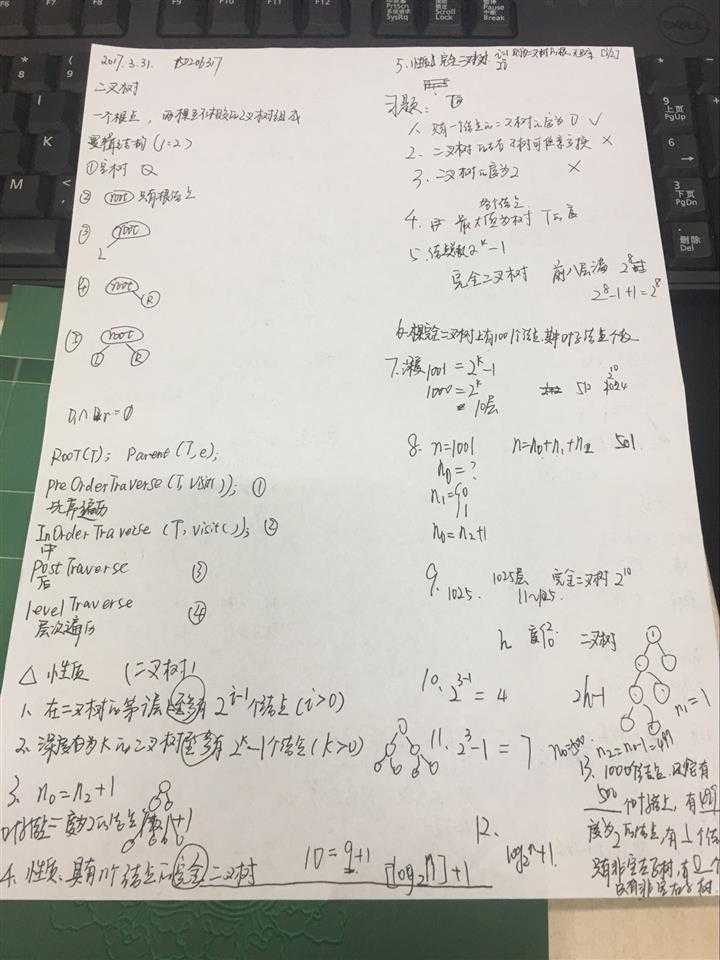 2017.3.31.
二叉树
一个根点，两棵互不相交的二叉树组成
逻辑结构 (1=2)
①空树
② root 只有根结点
③ root
L
④ root
R
⑤ root
L R
RooT(T); Parent(T,e);
preOrderTraverse(T,Visit()); ①
先序遍历
InOrderTraverse (T, visit()); ②
中
Post Traverse ③
后
levelTraverse ④
层次遍历
△ 性质 (二叉树)
1. 在二叉树的第i层上至多有 2^{i-1}个结点 (i>0)
2. 深度为K的二叉树至多有 2^k-1个结点 (k>0)
3. n0 = n2+1
叶结点=度为2的结点+1
10=9+1
4. 性质: 具有n个结点的完全二叉树 [log2 n]+1
5. 性质 完全二叉树
习题:
1. 只有一个结点的二叉树的度为0 √
2. 二叉树的左右子树可任意交换 ×
3. 二叉树的度为2 ×
各个结点
4. 最大值为树T的度
5. 结点数 2^k-1
完全二叉树 前八层满 2^8
2^8-1+1=2^8
6. 一棵完全二叉树上有1001个结点,其中叶子结点个数
7. 深度 1001=2^k-1
1000=2^k 510 2^10 1024
10层
8. n=1001 n=n0+n1+n2 501
n0=?
n1={0
1
n0=n2+1
9. 1025层 完全二叉树 2^10
1025. 11~1025.
h 度 {2 0 二叉树
10. 2^{3-1}=4 2h-1
n1=1
11. 2^3-1=7
n0=500 n2=n0-1=499
12. log2^n+1
13. 1000个结点
500个叶结点, 有499
度为2的结点, 有1个结
只有非空左子树, 有0个
只有非空右子树.